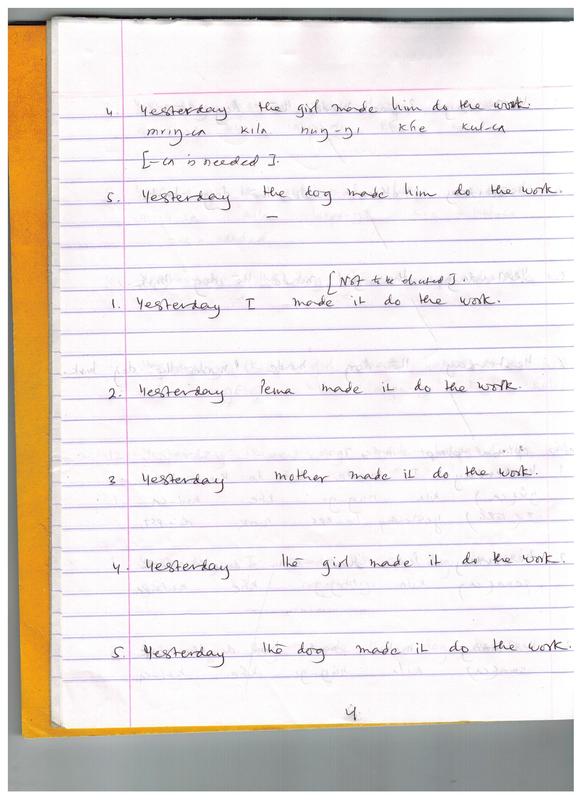 4. Yesterday the girl made him do the work.
kiln nuŋ-ŋi khe
[-cn is needed].
5. Yesterday the dog made him do the work.
–
[Not to be elicited].
1. Yesterday I made it do the work.
2. Yesterday Pema made it do the work.
3 Yesterday mother made it do the work.
4. Yesterday the girl made it do the work.
5. Yesterday the dog made it do the work.
4